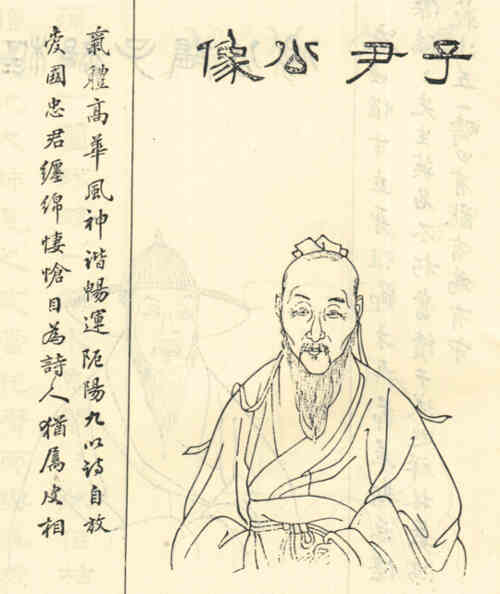 子尹公像
氣體高華風神諧暢運阨陽九以詩自放
愛國忠君纏綿悽愴目為詩人猶屬皮相